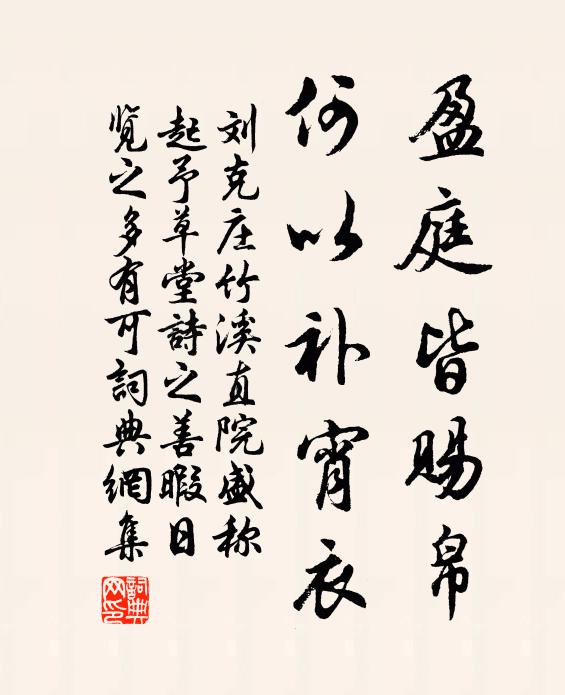 盈庭皆赐帛
何以补宵衣
刘克庄竹溪直院盛称
起予草堂詩之善暇日
覽之多有可詞典網集
詞典网印